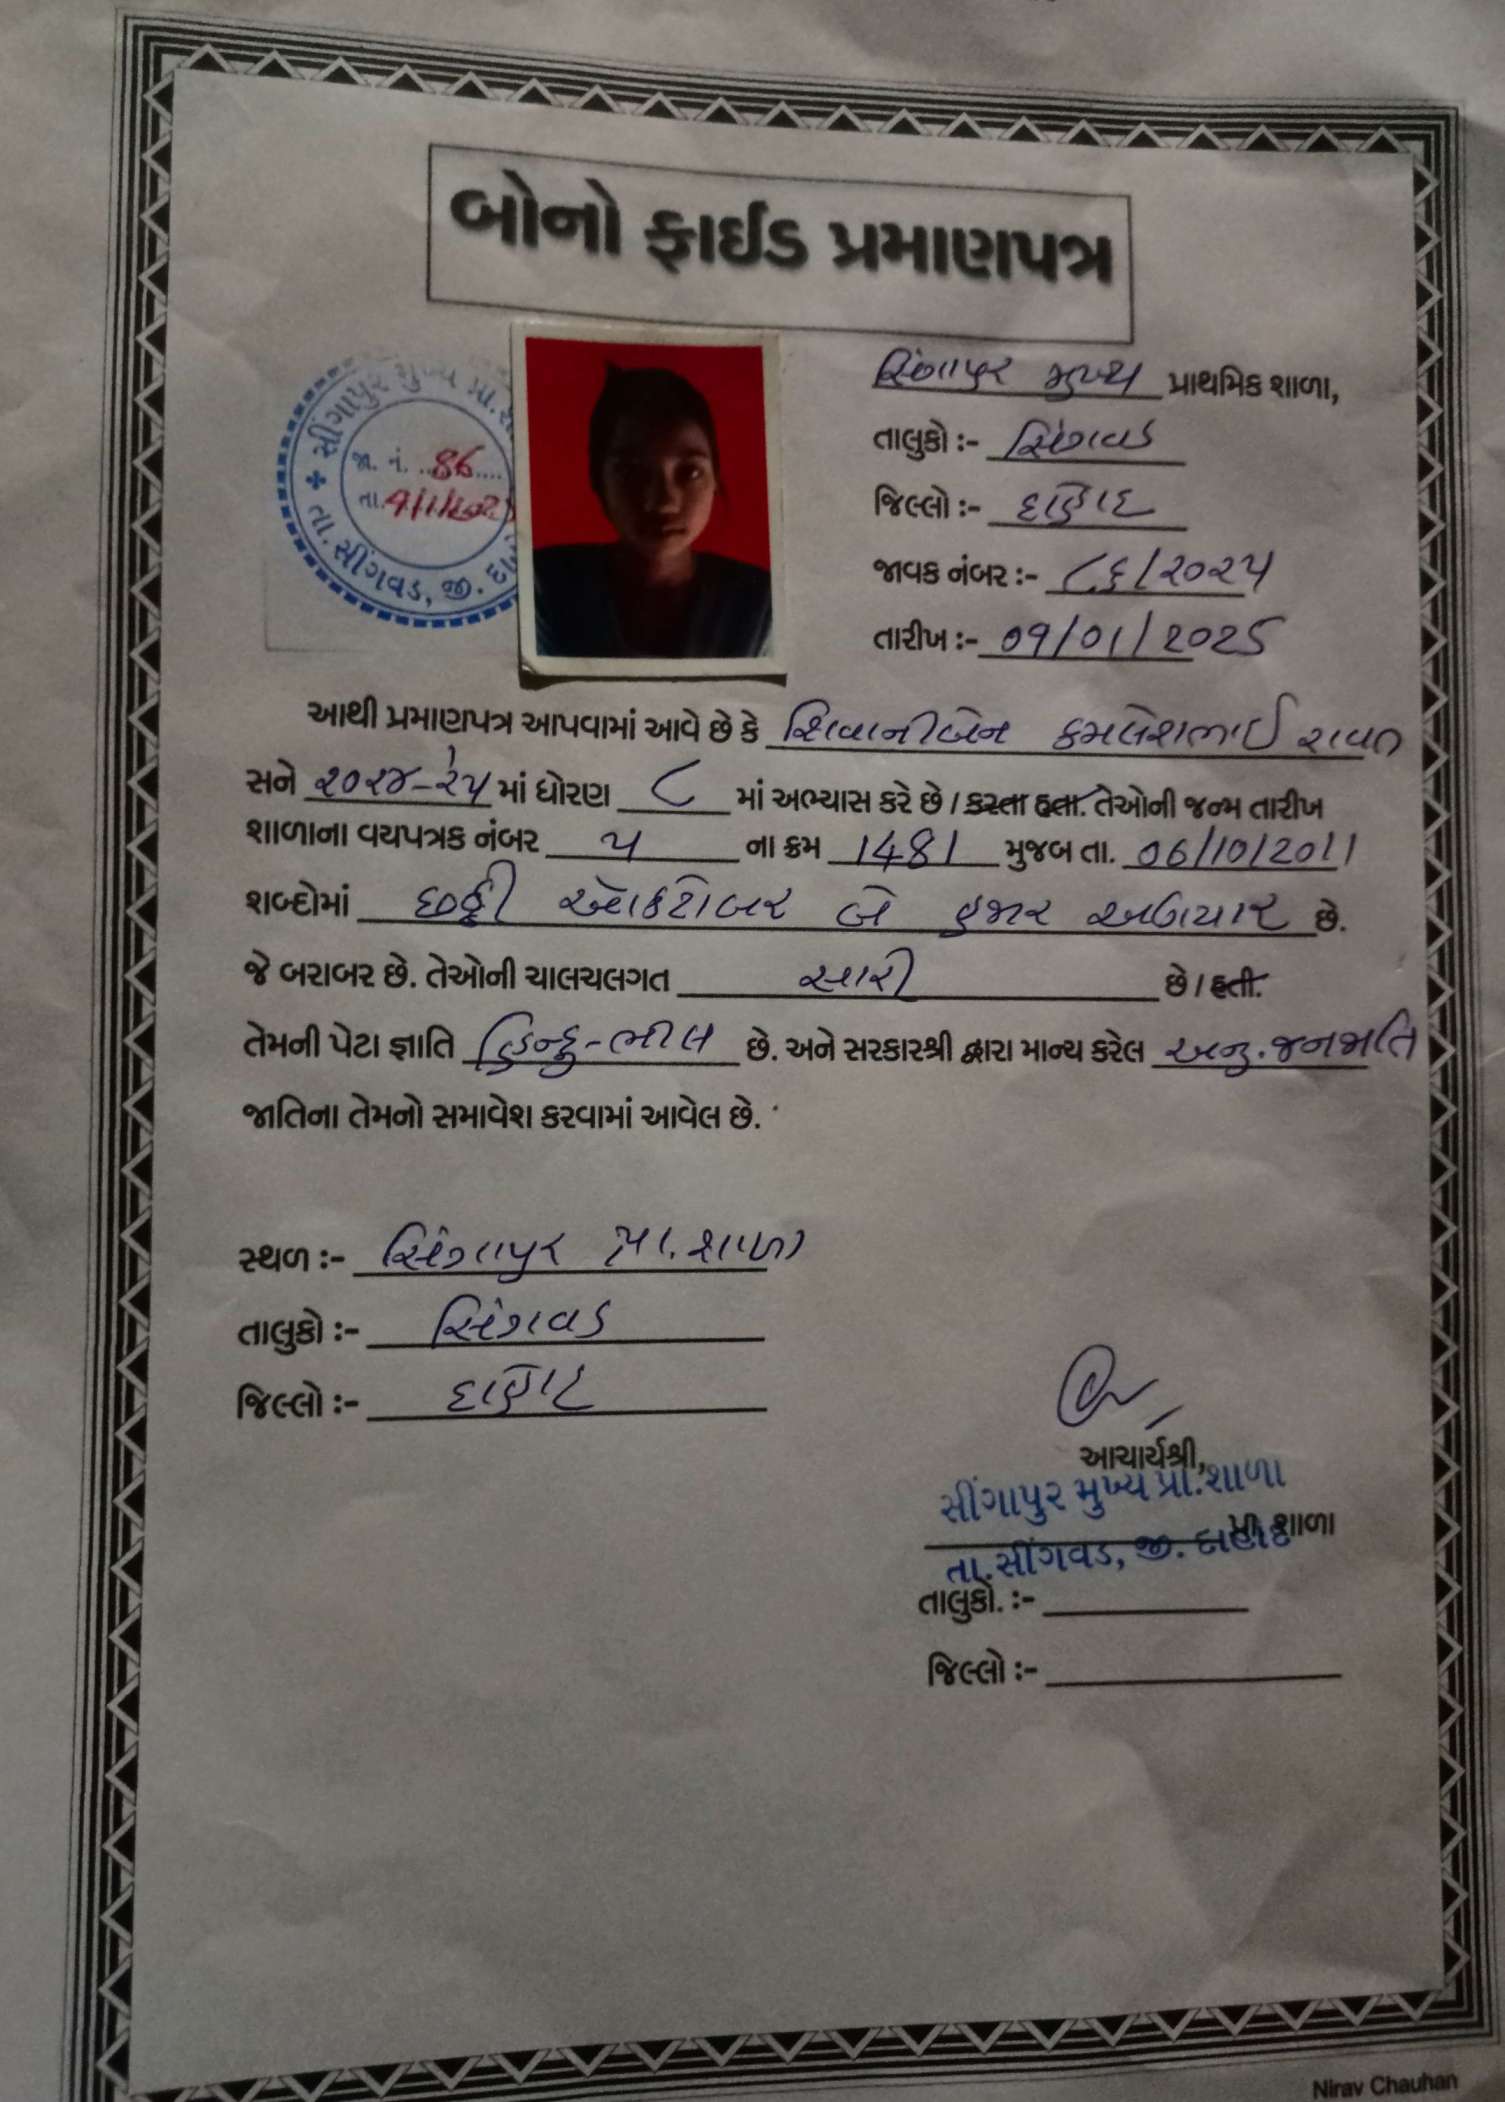 બોનો ફાઈડ પ્રમાણપત્ર
સીંગાપુર મુખ્ય પ્રા.
જા. નં. ..86....
તા. 9/1/202
તા. સીંગવડ, જી.
સિંગાપુર મુખ્ય પ્રાથમિક શાળા,
તાલુકો :- સિંગવડ
જિલ્લો :- દાહોદ
જાવક નંબર :- ૮૬/૨૦૨૫
તારીખ :- 09/01/2025
આથી પ્રમાણપત્ર આપવામાં આવે છે કે શિવાનીબેન કમલેશભાઈ રાવત
સને ૨૦૨૪-૨૫ માં ધોરણ ૮ માં અભ્યાસ કરે છે / કરતા હતા. તેઓની જન્મ તારીખ
શાળાના વયપત્રક નંબર ૫ ના ક્રમ 1481 મુજબ તા. 06/10/2011
શબ્દોમાં છઠ્ઠી ઓક્ટોબર બે હજાર અગિયાર છે.
જે બરાબર છે. તેઓની ચાલચલગત સારી છે / હતી.
તેમની પેટા જ્ઞાતિ હિન્દુ-ભીલ છે. અને સરકારશ્રી દ્વારા માન્ય કરેલ અનુ. જનજાતિ
જાતિના તેમનો સમાવેશ કરવામાં આવેલ છે.
સ્થળ :- સિંગાપુર પ્રા. શાળા
તાલુકો :- સિંગવડ
જિલ્લો :- દાહોદ
આચાર્યશ્રી,
સીંગાપુર મુખ્ય પ્રા. શાળા
પ્રા શાળા
તા. સીંગવડ, જી. દાહોદ
તાલુકો. :-
જિલ્લો :-
Nirav Chauhan